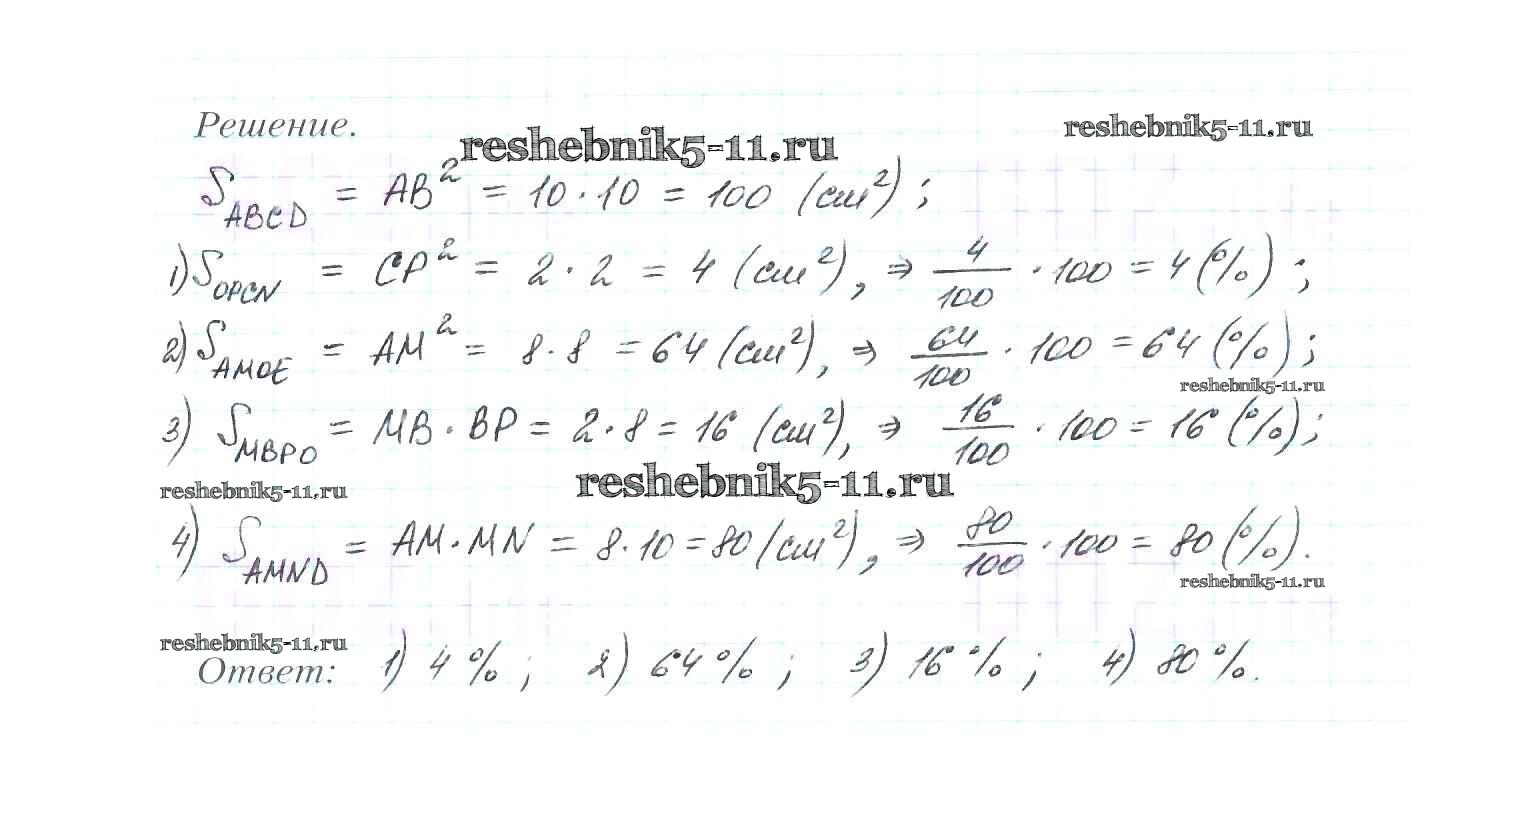 Решение.
reshebnik5-11.ru
reshebnik5-11.ru
S_ABCD = AB² = 10 · 10 = 100 (см²) ;
1) S_OPCN = CP² = 2 · 2 = 4 (см²), ⇒ 4/100 · 100 = 4 (%) ;
2) S_AMOE = AM² = 8 · 8 = 64 (см²), ⇒ 64/100 · 100 = 64 (%) ;
reshebnik5-11.ru
3) S_MBPO = MB · BP = 2 · 8 = 16 (см²), ⇒ 16/100 · 100 = 16 (%) ;
reshebnik5-11.ru
reshebnik5-11.ru
4) S_AMND = AM · MN = 8 · 10 = 80 (см²), ⇒ 80/100 · 100 = 80 (%).
reshebnik5-11.ru
reshebnik5-11.ru
Ответ: 1) 4 % ; 2) 64 % ; 3) 16 % ; 4) 80 %.